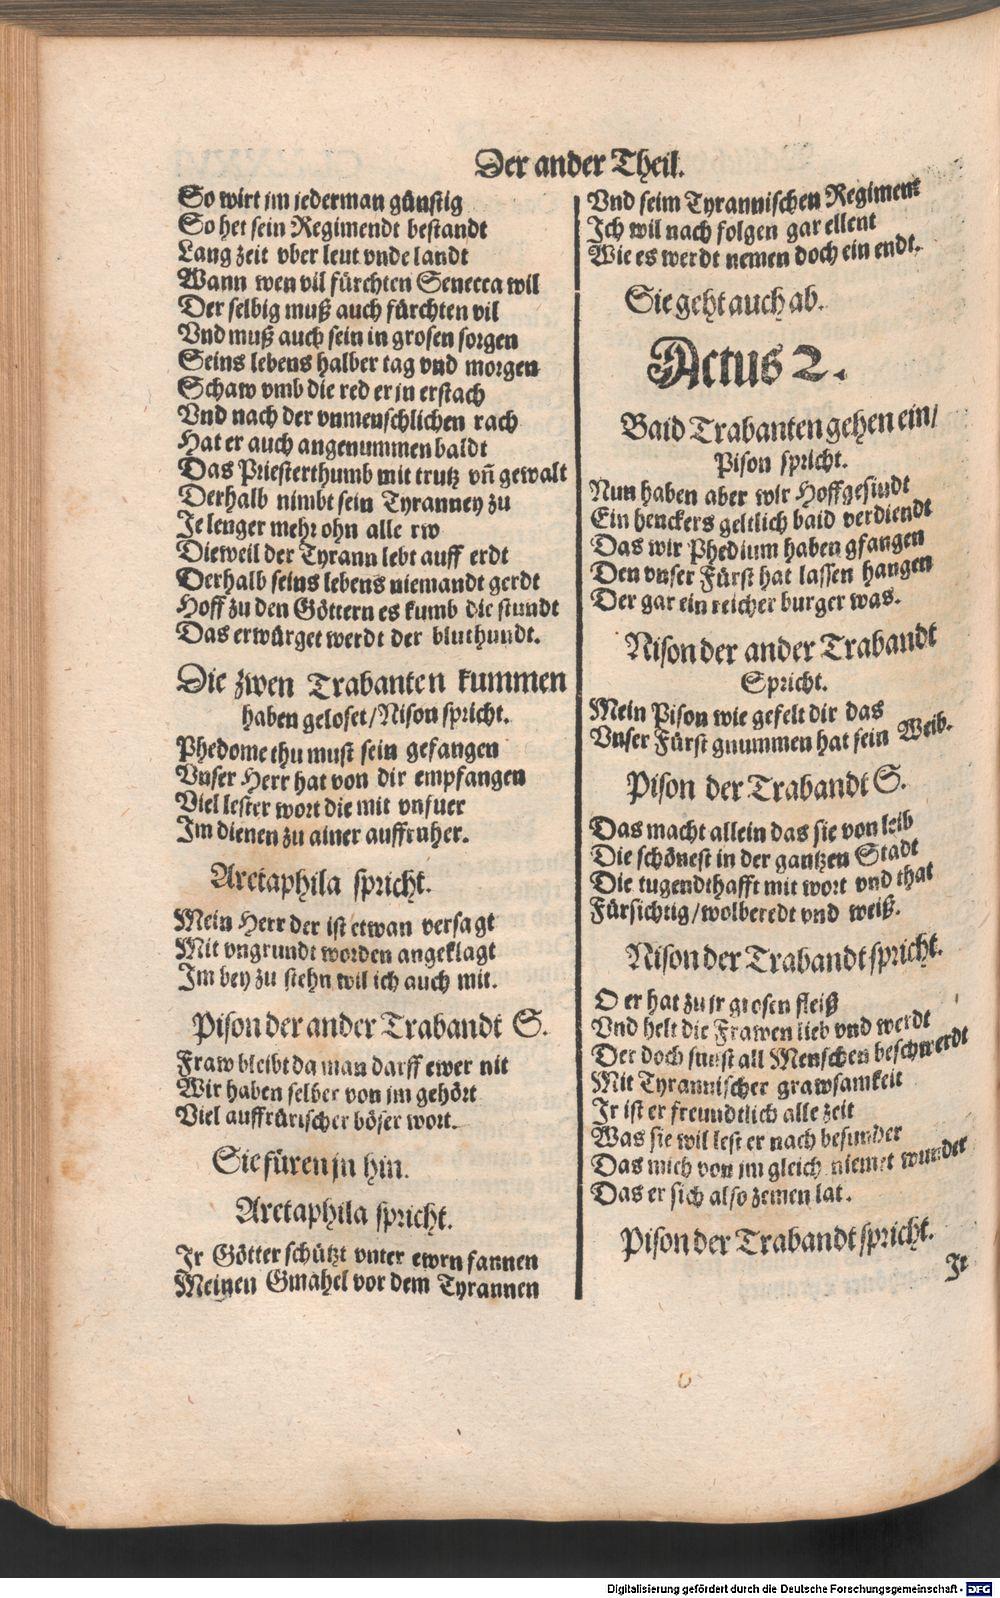 Der ander Theil.
So wirt jm jederman günstig
So het sein Regimendt bestandt
Lang zeit vber leut vnde landt
Wann wen vil fürchten Senecca wil
Der selbig muß auch fürchten vil
Vnd muß auch sein in grosen sorgen
Seins lebens halber tag vnd morgen
Schaw vmb die red er jn erstach
Vnd nach der vnmenschlichen rach
Hat er auch angenummen baldt
Das Priesterthumb mit trutz vñ gewalt
Derhalb nimbt sein Tyranney zu
Je lenger mehr ohn alle rw
Dieweil der Tyrann lebt auff erdt
Derhalb seins lebens niemandt gerdt
Hoff zu den Göttern es kumb die stundt
Das erwürget werdt der bluthundt.
Die zwen Trabanten kummen
haben geloset/Nison spricht.
Phedome thu must sein gefangen
Vnser Herr hat von dir empfangen
Viel lester wort die mit vnfuer
Im dienen zu ainer auffruher.
Aretaphila spricht.
Mein Herr der ist etwan versagt
Mit vngrundt worden angeklagt
Im bey zu stehn wil ich auch mit.
Pison der ander Trabandt S.
Fraw bleibt da man darff ewer nit
Wir haben selber von jm gehört
Viel auffrürischer böser wort.
Sie füren jn hin.
Aretaphila spricht.
Ir Götter schützt vnter ewrn fannen
Meinen Gmahel vor dem Tyrannen
Vnd seim Tyrannischen Regiment
Ich wil nach folgen gar ellent
Wie es werdt nemen doch ein endt.
Sie geht auch ab.
Actus 2.
Baid Trabanten gehen ein/
Pison spricht.
Nun haben aber wir Hoffgesindt
Ein henckers geltlich baid verdiendt
Das wir Phedium haben gfangen
Den vnser Fürst hat lassen hangen
Der gar ein reicher burger was.
Nison der ander Trabandt
Spricht.
Mein Pison wie gefelt dir das
Vnser Fürst gnummen hat sein Weib.
Pison der Trabandt S.
Das macht allein das sie von leib
Die schönest in der gantzen Stadt
Die tugendthafft mit wort vnd that
Fürsichtig/wolberedt vnd weiß.
Nison der Trabandt spricht.
O er hat zu jr grosen fleiß
Vnd helt die Frawen lieb vnd werdt
Der doch sunst all Menschen beschwerdt
Mit Tyrannischer grawsamkeit
Ir ist er freundtlich alle zeit
Was sie wil lest er nach besunder
Das mich von jm gleich niemet wunder
Das er sich also zemen lat.
Pison der Trabandt spricht.
Ir
Digitalisierung gefördert durch die Deutsche Forschungsgemeinschaft - DFG